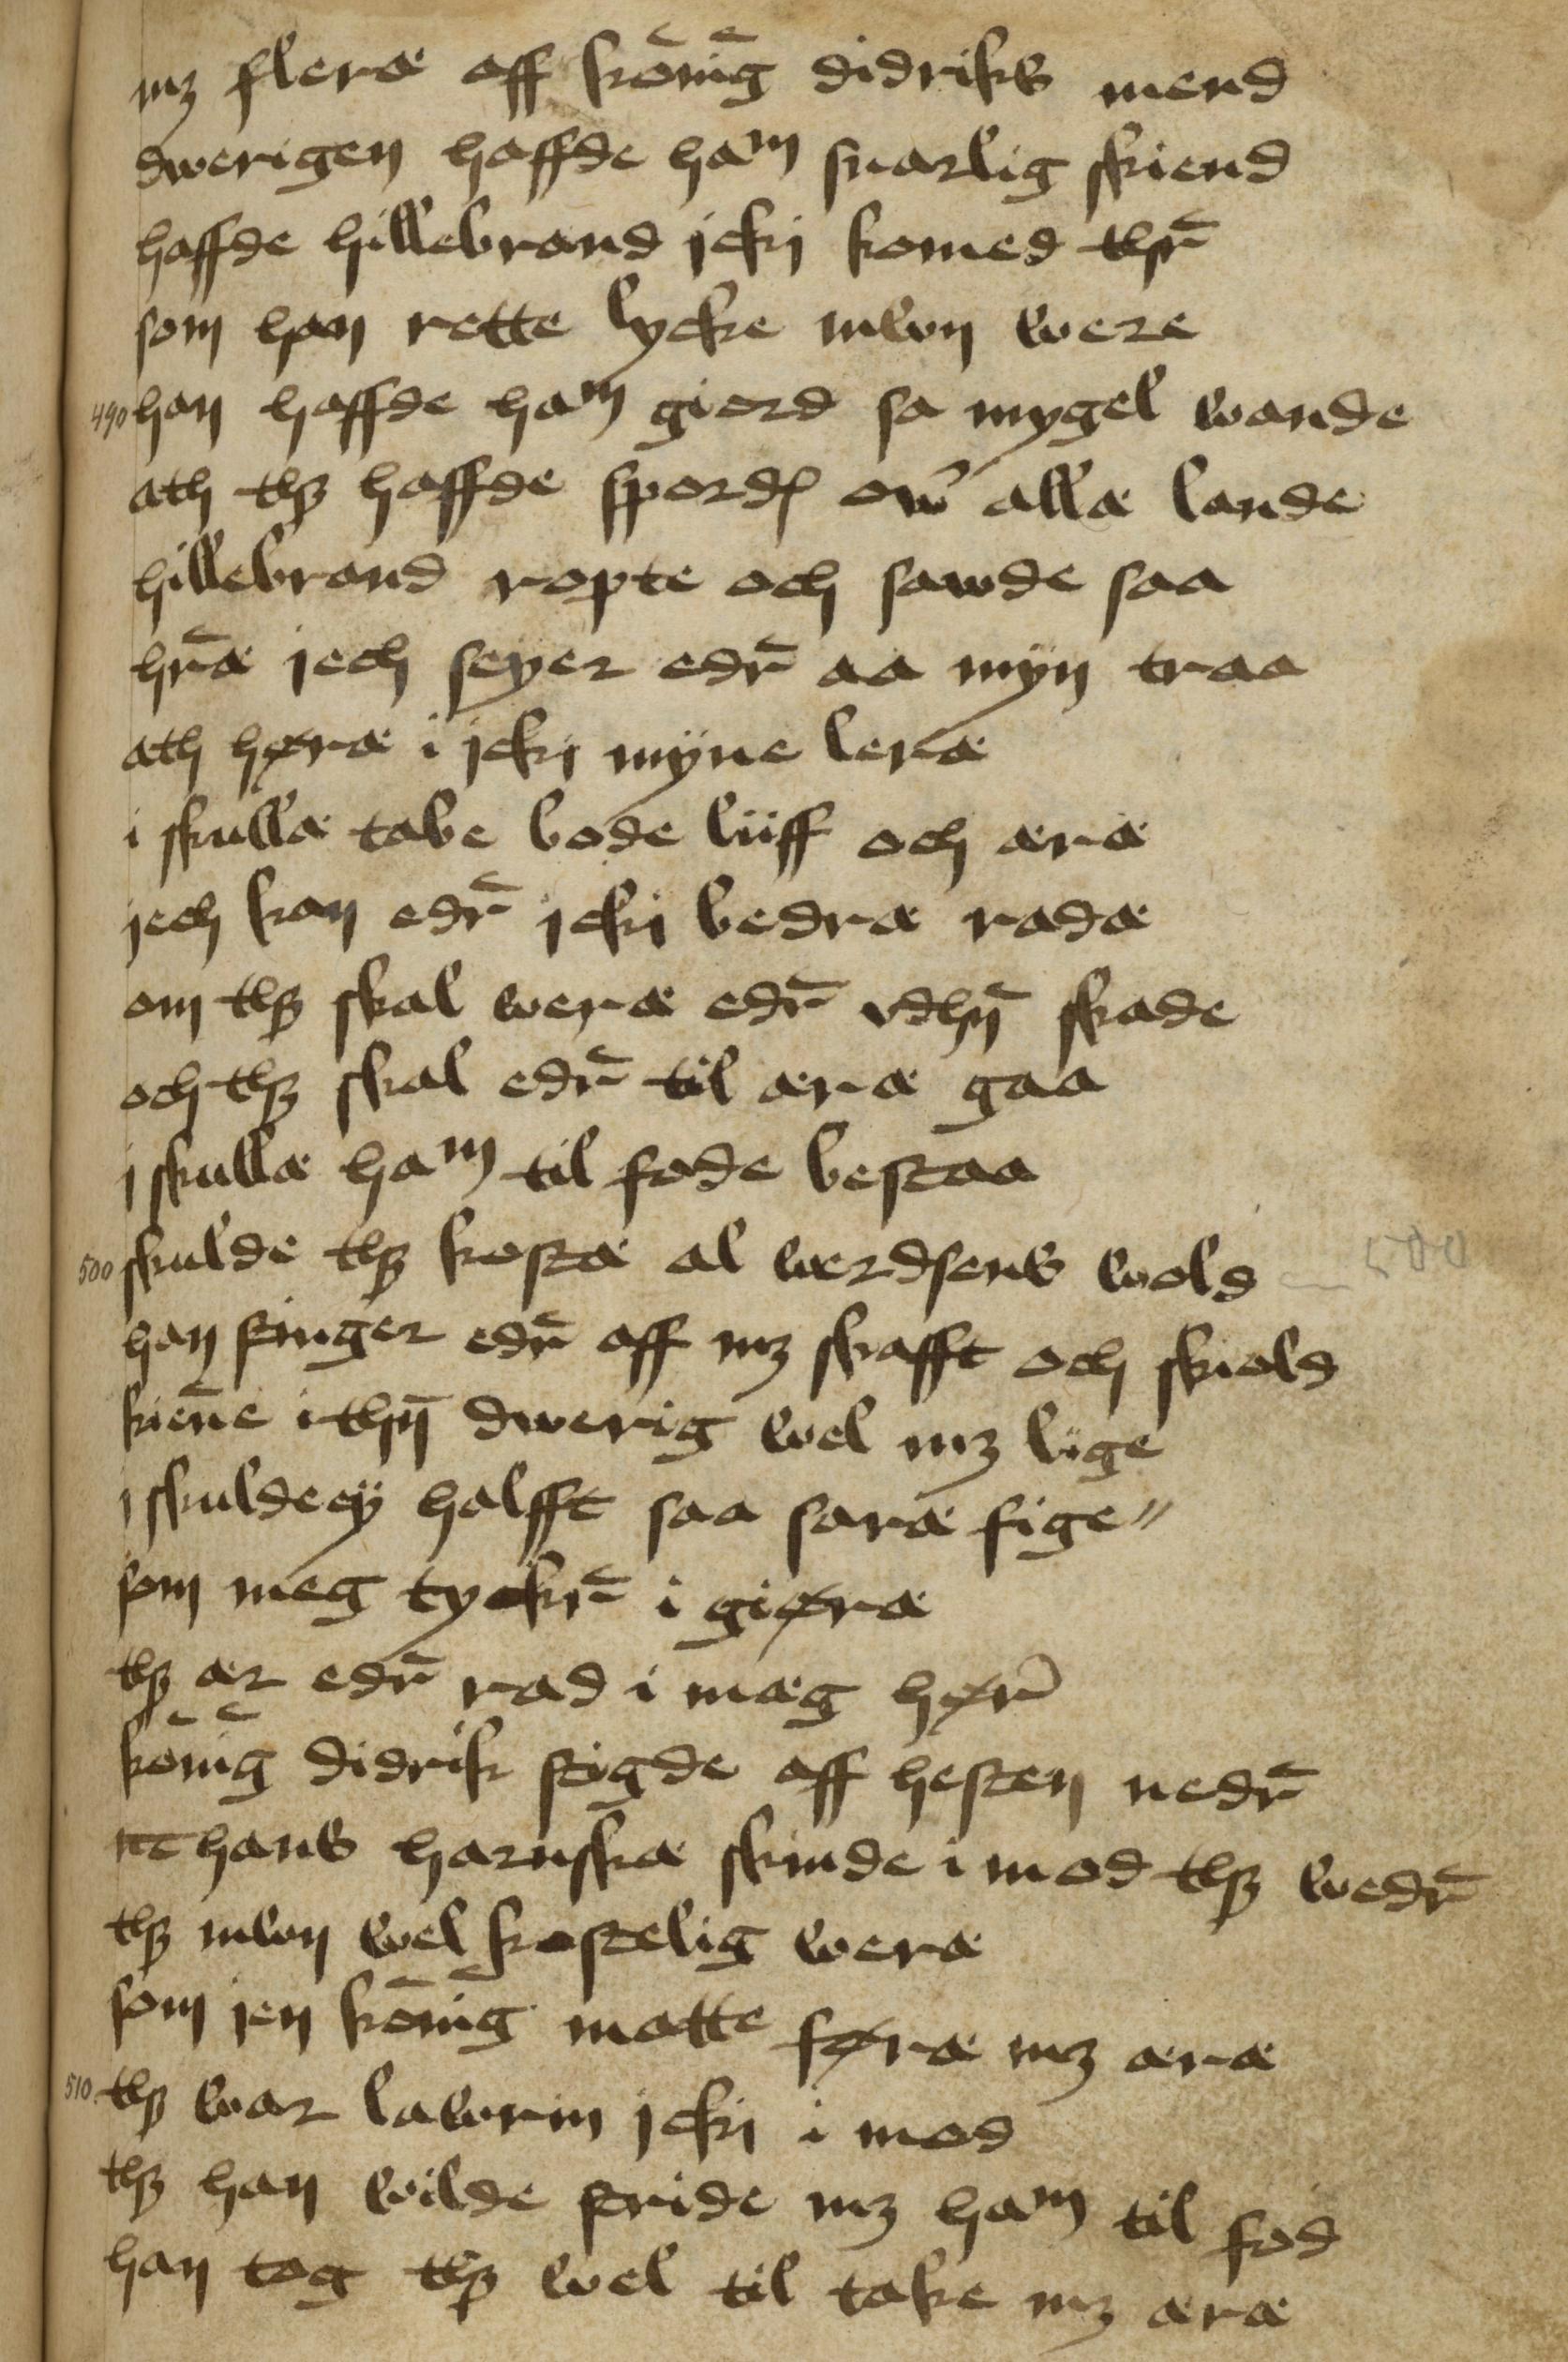 mꝫ fleræ aff kōnīg didriks mend
dwerigen haffde haᵐ snarlig skiend
haffde hillebrand jcki komed thr̄
som han rette lycke mwn were
490 han haffde haᵐ giord sa mygel wande
ath thꝫ haffde spordꝭ ow̄ allæ lande
hillebrand ropte och sawde saa
hr̄æ jech seyer edr̄ aa myn traa
ath høræ i jcki myne leræ
i skullæ tabe bode liiff och æræ
jech kan edr̄ jcki bedræ radæ
om thꝫ skal weræ edr̄ vdhn̄ skade
och thꝫ skal edr̄ til æræ gaa
j skullæ haᵐ til fode bestaa
500 skulde thꝫ kostæ al werdsens wold 500
han stinger edr̄ aff mꝫ skafft och skiold
kien̄e i thn̄ dwerig wel mꝫ lige
j skulde ey halfft saa saræ fige〃
som meg tyckr̄ i giøræ
thꝫ ær edr̄ rad i mæg hør̄
kōnīg didrik stigde aff hesten nedr̄
hans harnskæ skinde i mod thꝫ wedr̄
thꝫ mwn wel kostelig weræ
som jen kōnīg motte føræ mꝫ æræ
510 thꝫ war lawrin jcki i mod
thꝫ han wilde stride mꝫ haᵐ til fod
han tog thꝫ wel til take mꝫ æræ